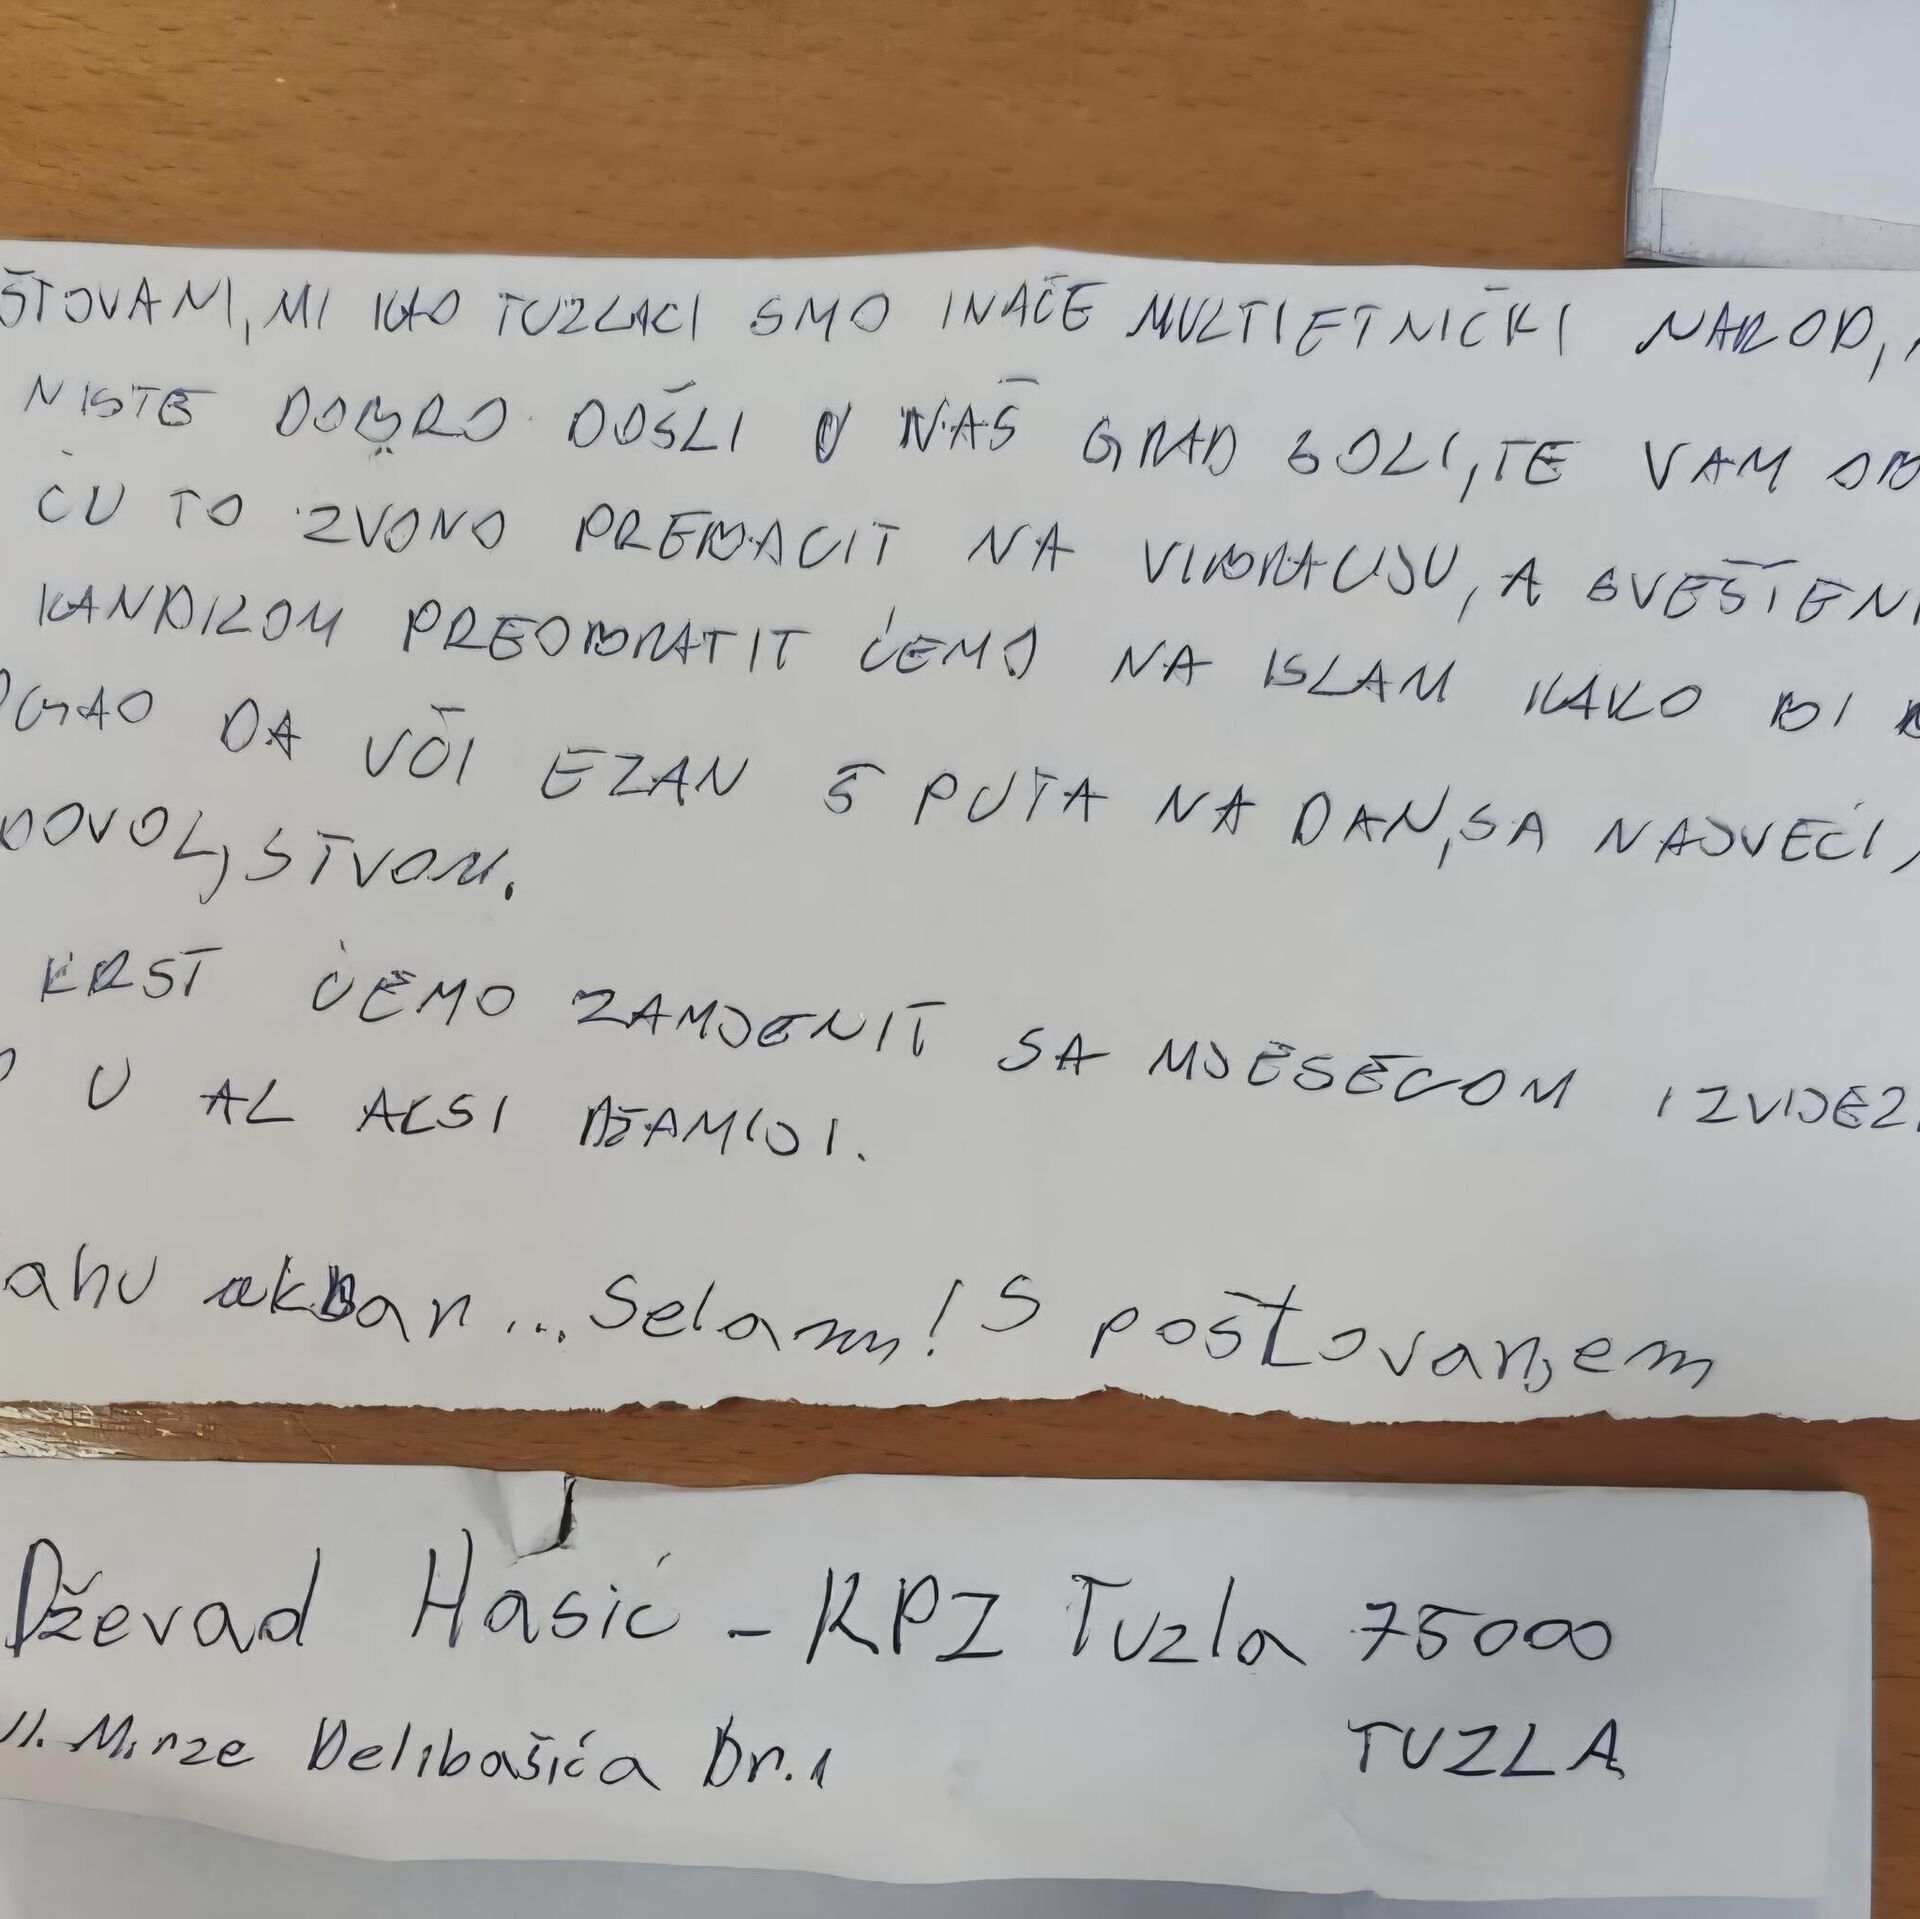 ŠTOVANI, MI KAO TUZLACI SMO INAČE MULTIETNIČKI NAROD,
NISTE DOBRO DOŠLI U NAŠ GRAD SOLI, TE VAM OB
ĆU TO ZVONO PREBACIT NA VIBRACIJU, A SVEŠTENI
KANDILOM PREOBRATIT ĆEMO NA ISLAM KAKO BI
OGAO DA UČI EZAN 5 PUTA NA DAN, SA NAJVEĆI
DOVOLJSTVOM.
KRST ĆEMO ZAMJENIT SA MJESECOM I ZVIJEZ
U AL AKSI DŽAMIJI.
ahu akbar... Selam! S poštovanjem
Dževad Hasić - KPZ Tuzla 75000
Ul. Mirze Delibašića Br. 1 TUZLA